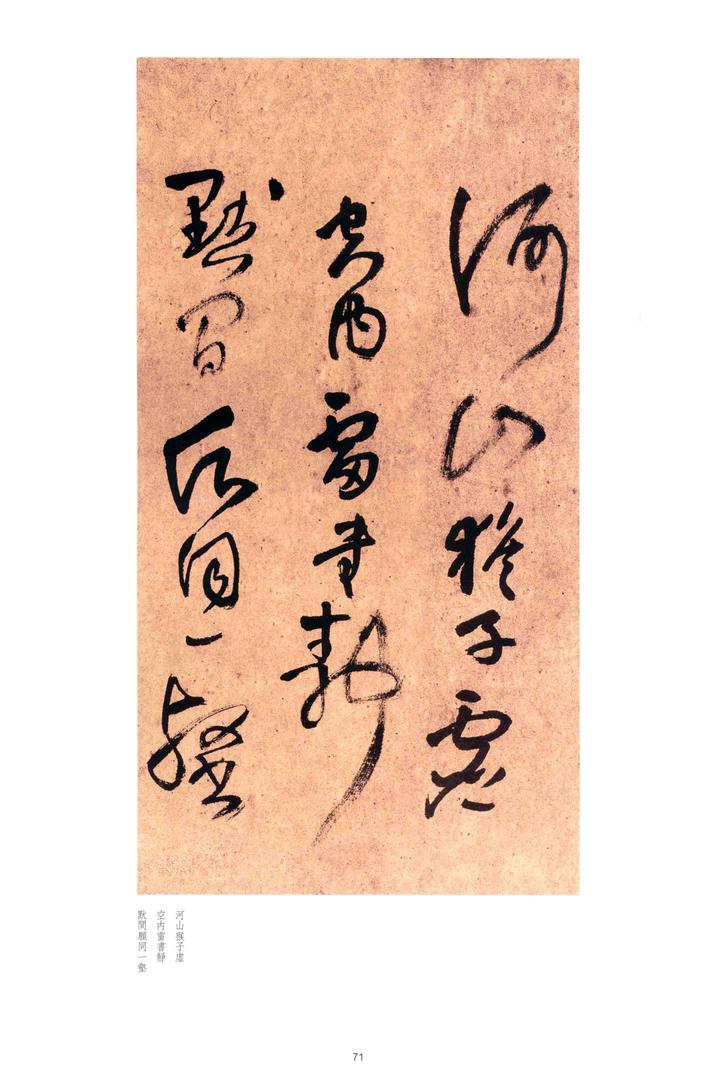 河山猴子虛
空内雷書靜
默間願同一壑
河山猴子虛
空内雷書靜
默間願同一壑
71